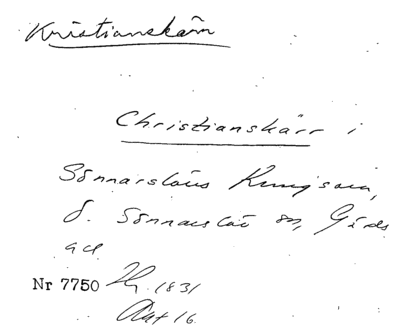 Kristianskärr
Christianskärr i
Sönnarslövs Kungsom,
d. Sönnarslöv sn, Gärds
Nr 7750 1831
Akt 16.